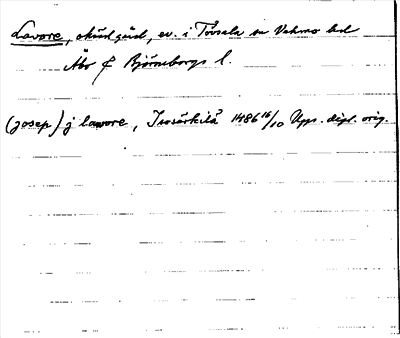 Lavore, okänd gård, ev. i Tövsala sn Vehmo hd
Åbo & Björneborgs l.
(josep) j lawore, Isosärkilä 1486 16/10 Ups. dipl. orig.